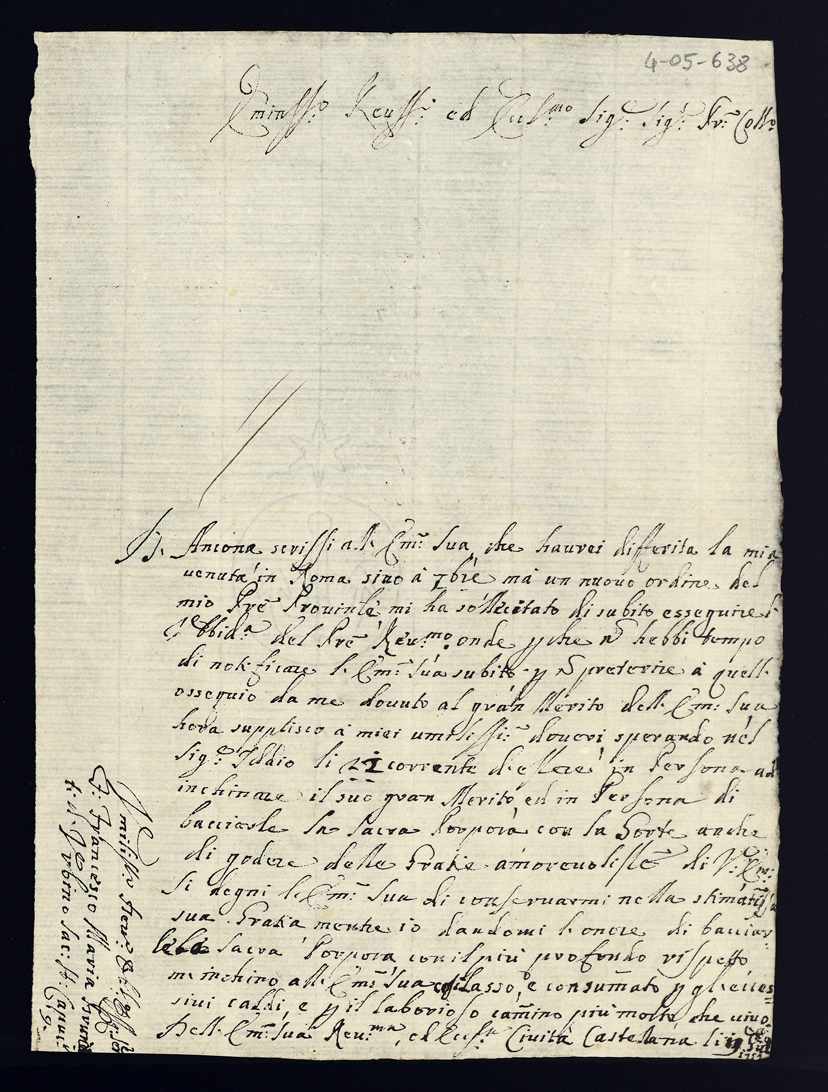 4-05-638
Sig.r Sig.r
D. Ancona scrissi all. Em: Sua, che haurei differita la mia
venuta in Roma sino à 7bre mà un nuovo ordine del
mio Pre Provinle mi ha sollecitato di subito esseguire l'
del Pre Reu:mo onde p che n hebbi tempo
di notificare l. Em: Sua subito p n preterire à quell.
ossequio da me dovuto al gran Merito dell. Em: Sua
hora supplisco à miei umilissi: doveri sperando nel
Sig.r Iddio li 21 corrente d.essere in Persona ad
inchinare il suo gran Merito, ed in Persona di
bacciarle la Sacra Porpora con la Sorte anche
di godere delle Gratie amorevolisse di V: Em:
Si degni l. Em: Sua di conservarmi nella
sua Gratia mentre io dandomi l. onore di bacciar
le la Sacra Porpora con il più profondo rispetto
m. inchino all. Em: Sua lasso, e consumato p gl. ecces=
sivi caldi, e p il laborioso camino più morto che vivo
Dell. Em: Sua Reu:ma, ed Civita Castellana li 19
Francesco Maria
Urbino